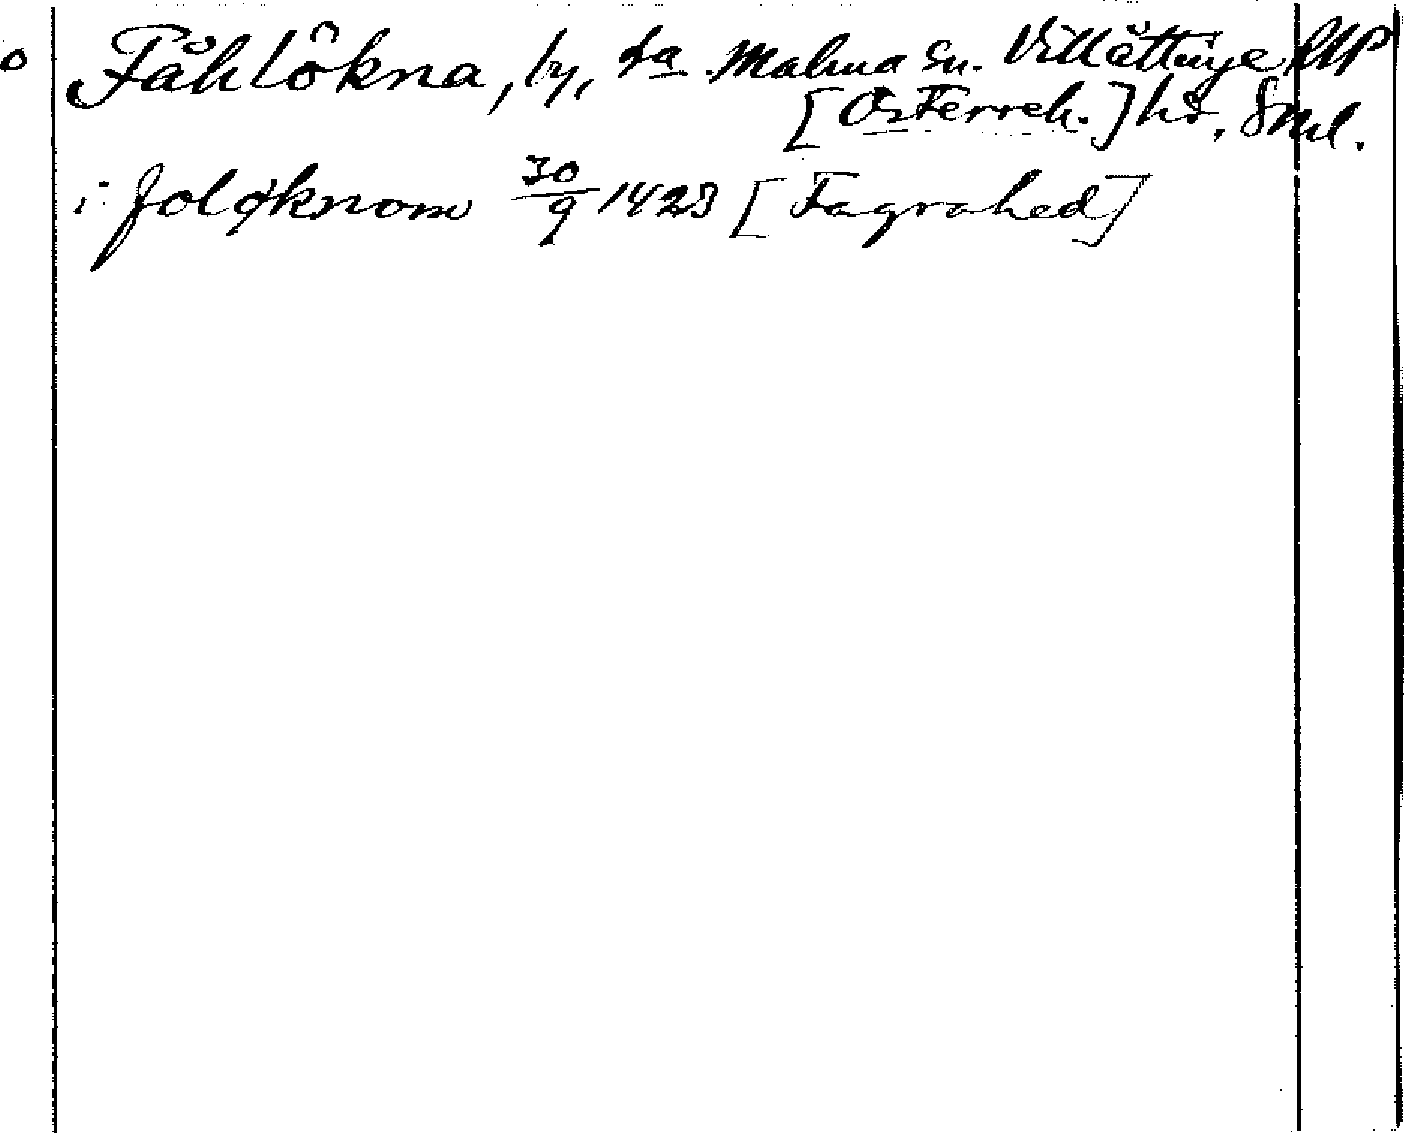 Fåhlökna, by, Sa Malma sn. Villåttinge RAP
[Österreh.] hd. Sml.
i foløknom 30/9 1423 [Fagrahed]